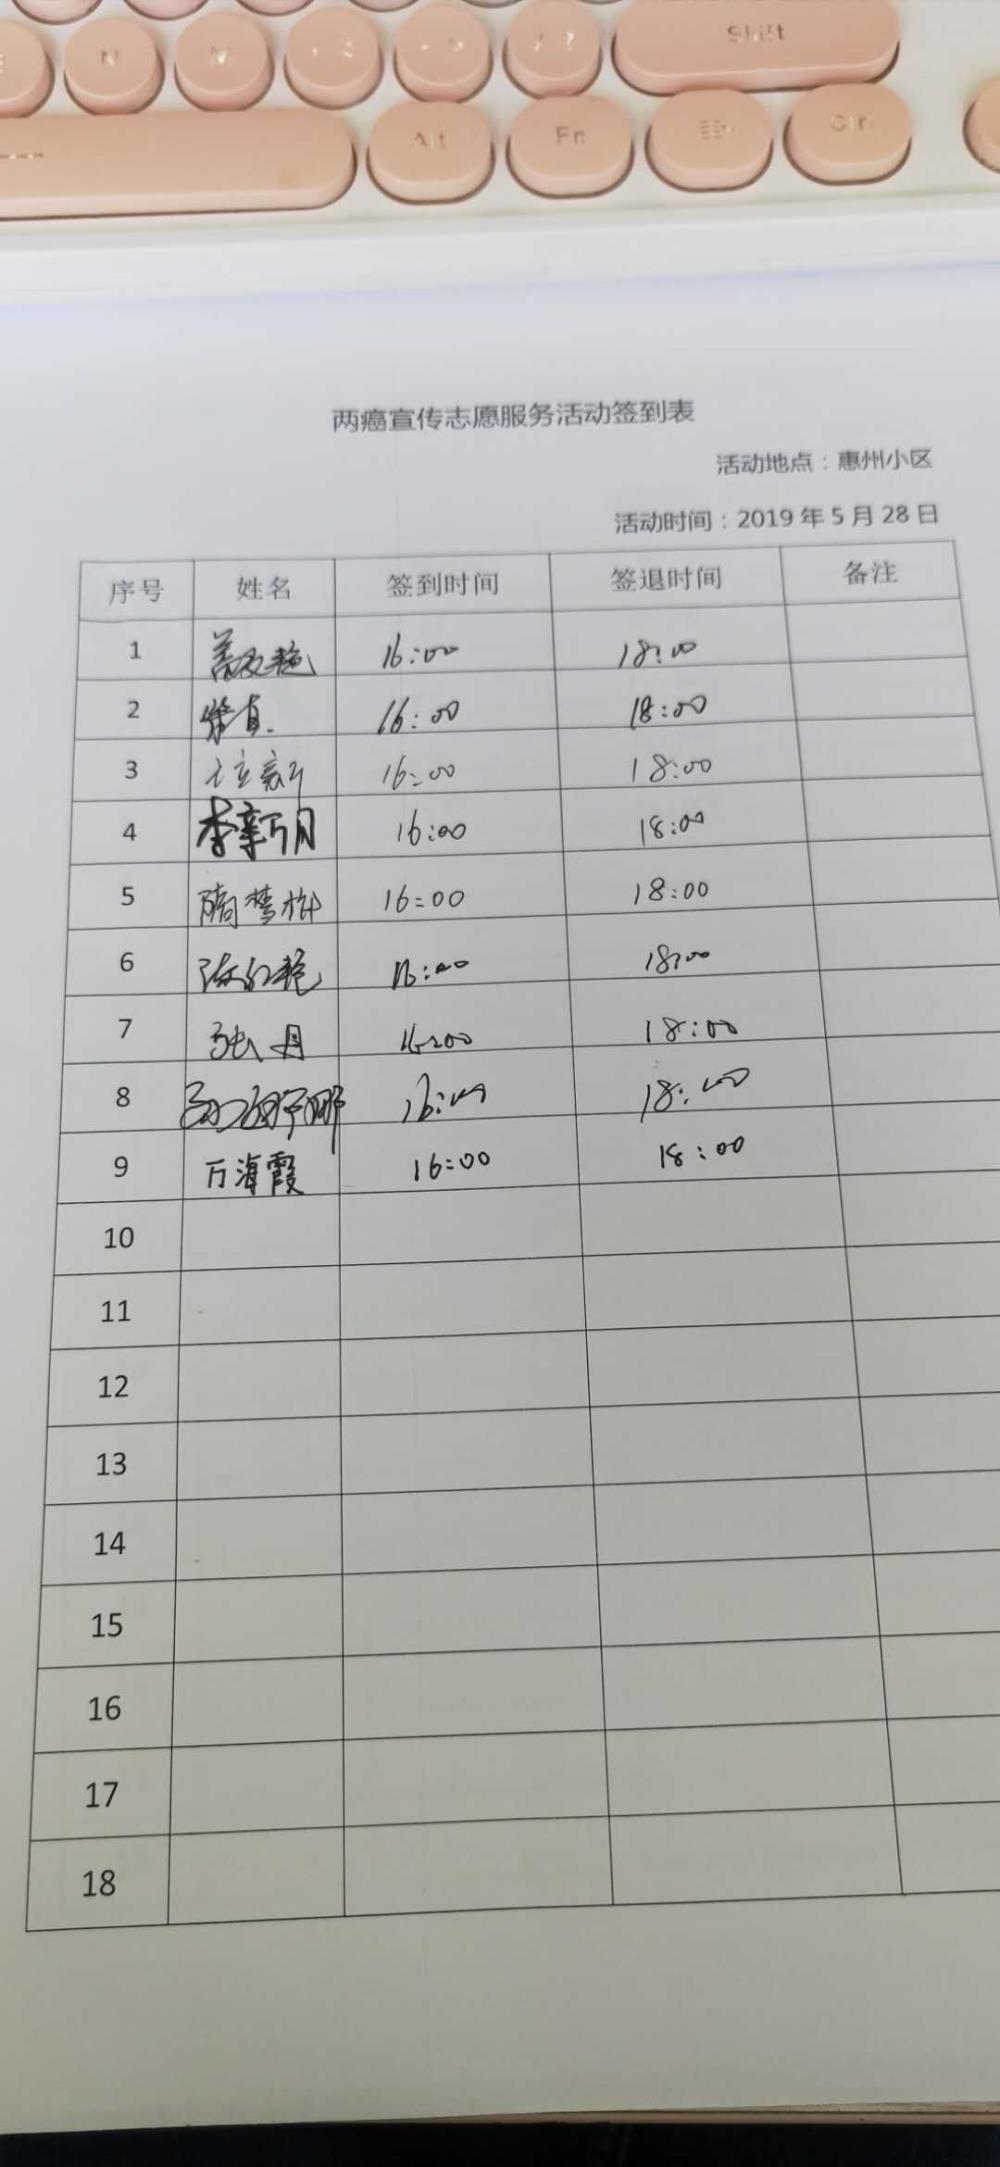 N
M
Shift
Alt
Fn
Ctrl
两癌宣传志愿服务活动签到表
活动地点：惠州小区
活动时间：2019年5月28日
序号 姓名 签到时间 签退时间 备注
1 16:00 18:00
2 16:00 18:00
3 16:00 18:00
4 李新月 16:00 18:00
5 16:00 18:00
6 16:00 18:00
7 张丹 16:00 18:00
8 16:00 18:00
9 万海霞 16:00 18:00
10
11
12
13
14
15
16
17
18